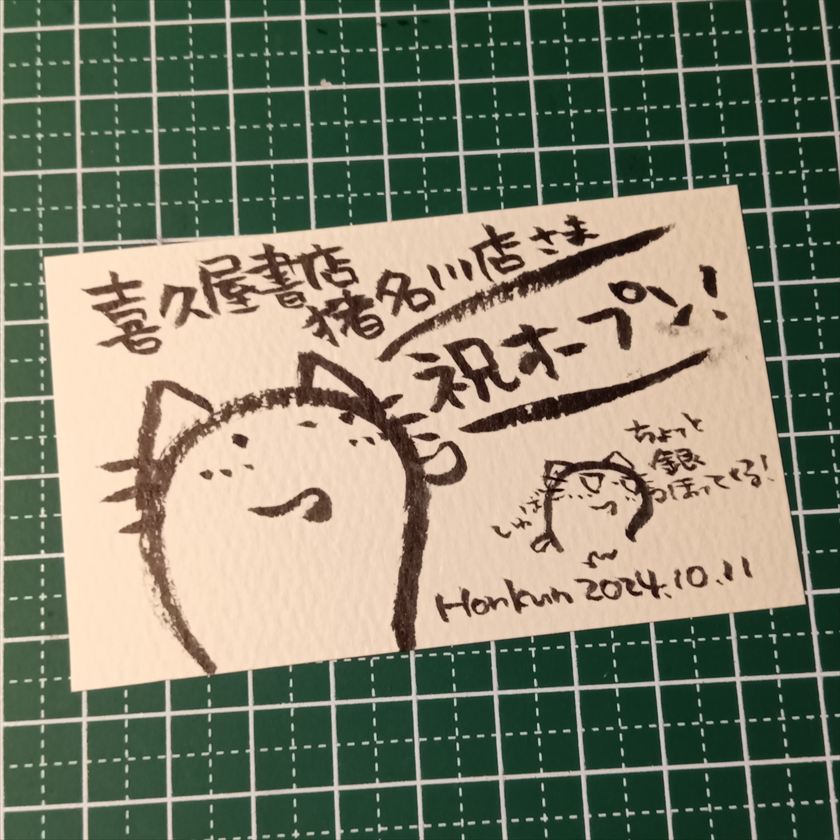 喜久屋書店
猪名川店さま
祝オープン!
ちょっと
銀
っぽってる!
Honkun 2024.10.11